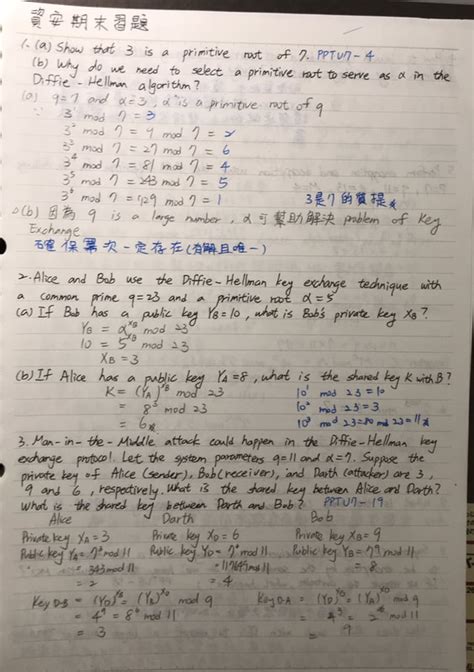 資安期末習題
1. (a) Show that 3 is a primitive root of 7. PPTU7-4
(b) Why do we need to select a primitive root to serve as α in the
Diffie-Hellman algorithm?
(a) q=7 and α=3, α is a primitive root of q
∵ 3¹ mod 7 = 3
3² mod 7 = 9 mod 7 = 2
3³ mod 7 = 27 mod 7 = 6
3⁴ mod 7 = 81 mod 7 = 4
3⁵ mod 7 = 243 mod 7 = 5
3⁶ mod 7 = 729 mod 7 = 1 3是7的質提
(b) 因為 q is a large number, α可幫助解決 problem of Key
Exchange
確保冪次一定存在(有解且唯一)
2. Alice and Bob use the Diffie-Hellman key exchange technique with
a common prime q=23 and a primitive root α=5
(a) If Bob has a public key YB=10, what is Bob's private key XB?
YB = α^XB mod 23
10 = 5^XB mod 23
XB = 3
(b) If Alice has a public key YA=8, what is the shared key K with B?
K = (YA)^XB mod 23 10¹ mod 23 = 10
= 8³ mod 23 10² mod 23 = 8
= 6 10³ mod 23 = 80 mod 23 = 11
3. Man-in-the-Middle attack could happen in the Diffie-Hellman key
exchange protocol. Let the system parameters q=11 and α=7. Suppose the
private key of Alice (sender), Bob (receiver), and Darth (attacker) are 3,
9 and 6, respectively. What is the shared key between Alice and Darth?
What is the shared key between Darth and Bob? PPTU7-19
Alice Darth Bob
Private key XA = 3 Private key XD = 6 Private key XB = 9
Public key YA = 7³ mod 11 Public key YD = 7⁶ mod 11 Public key YB = 7⁹ mod 11
= 343 mod 11 = 117649 mod 11 = 8
= 2 = 4
Key D-B = (YD)^XB = (YB)^XD mod q Key D-A = (YD)^XA = (YA)^XD mod q
= 4⁹ = 8⁶ mod 11 = 4³ = 2⁶ mod 11
= 3 = 9